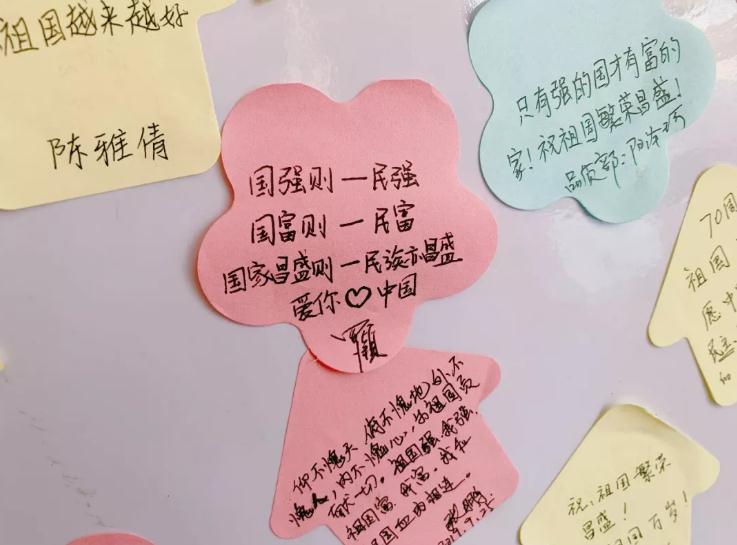 祖国越来越好
陈雅倩
国强则一民强
国富则一民富
国家昌盛则一民族亦昌盛
爱你♡中国
只有强的国才有富的
家！祝祖国繁荣昌盛！
品质部：
仰不愧天 俯不愧地 外不
愧人，内不愧心，为祖国贡
献一切。祖国强我强.
祖国富我富。我和
祖国血肉相连。
70周
祖国
愿中
民主
和
祝：祖国繁荣
昌盛！
祖国万岁！